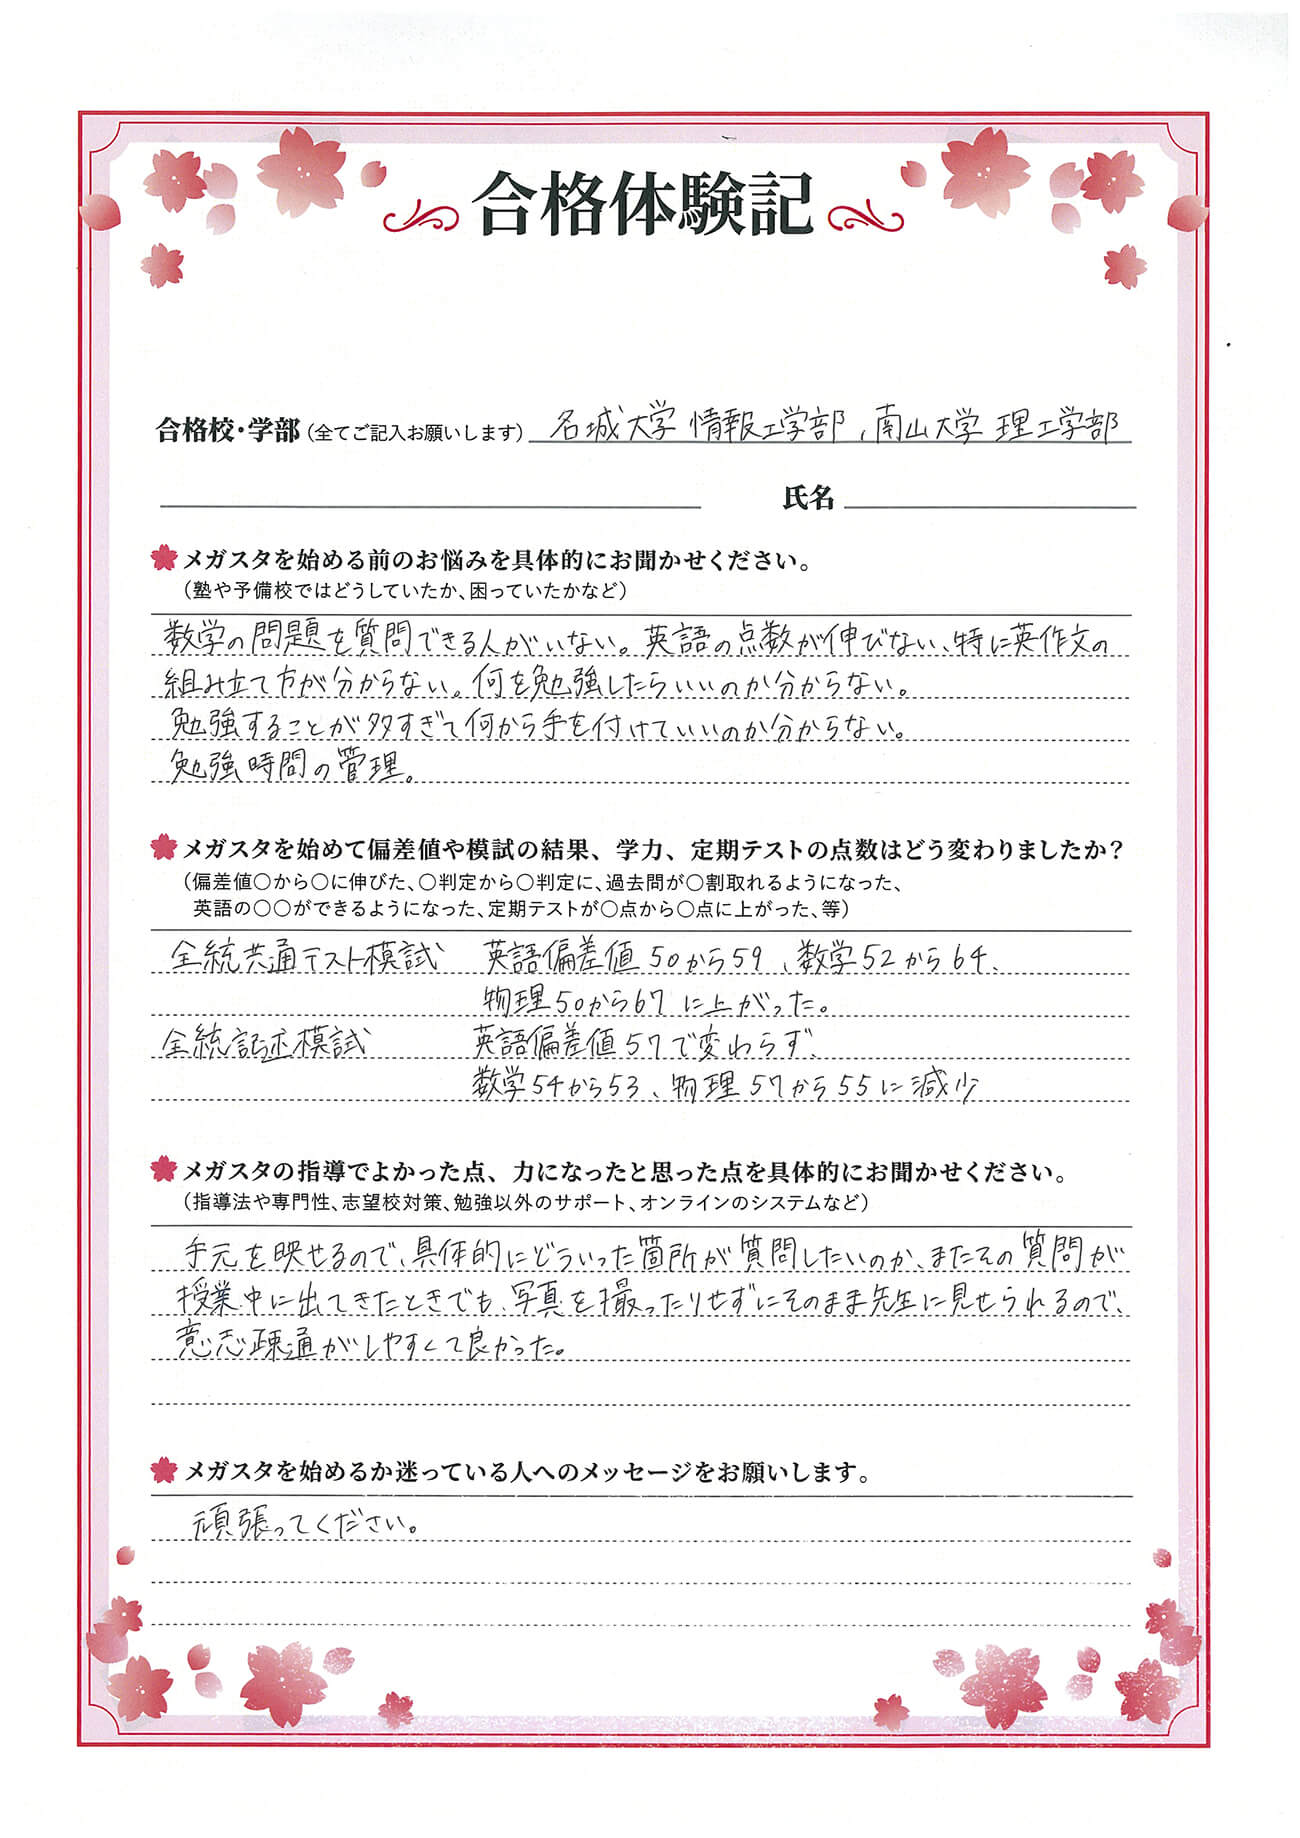 合格体験記
合格校・学部(全てご記入お願いします) 名城大学 情報工学部、南山大学 理工学部
氏名
メガスタを始める前のお悩みを具体的にお聞かせください。
(塾や予備校ではどうしていたか、困っていたかなど)
数学の問題を質問できる人がいない。英語の点数が伸びない、特に英作文の
組み立て方が分からない。何を勉強したらいいのか分からない。
勉強することが多すぎて何から手を付けていいのか分からない。
勉強時間の管理。
メガスタを始めて偏差値や模試の結果、学力、定期テストの点数はどう変わりましたか?
(偏差値○から○に伸びた、○判定から○判定に、過去問が○割取れるようになった、
英語の○○ができるようになった、定期テストが○点から○点に上がった、等)
全統共通テスト模試 英語偏差値50から59、数学52から64、
物理50から67に上がった。
全統記述模試 英語偏差値57で変わらず、
数学54から53、物理57から55に減少
メガスタの指導でよかった点、力になったと思った点を具体的にお聞かせください。
(指導法や専門性、志望校対策、勉強以外のサポート、オンラインのシステムなど)
手元を映せるので、具体的にどういった箇所が質問したいのか、またその質問が
授業中に出てきたときでも、写真を撮ったりせずにそのまま先生に見せられるので、
意志疎通がしやすくて良かった。
メガスタを始めるか迷っている人へのメッセージをお願いします。
頑張ってください。